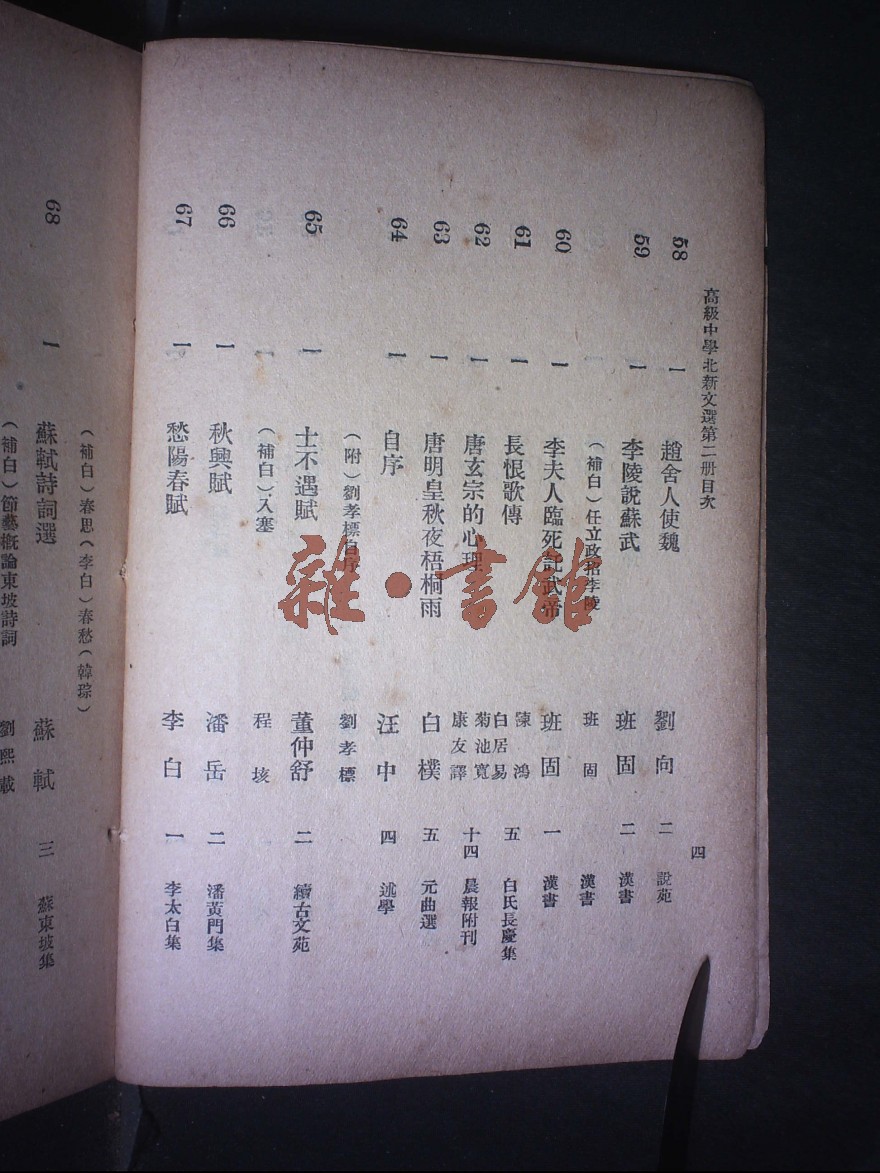 高級中學北新文選第二册目次
四
58 一 趙舍人使魏 劉向 二 說苑
59 一 李陵說蘇武 班固 二 漢書
（補白）任立政招李陵 班固 漢書
60 一 李夫人臨死託武帝 班固 一 漢書
61 一 長恨歌傳 陳鴻 白居易 五 白氏長慶集
62 一 唐玄宗的心理 菊池寬 康友譯 十四 晨報附刊
63 一 唐明皇秋夜梧桐雨 白樸 五 元曲選
64 一 自序 汪中 四 述學
（附）劉孝標自序 劉孝標
65 一 士不遇賦 董仲舒 二 續古文苑
（補白）入塞 程垓
66 一 秋興賦 潘岳 二 潘黃門集
67 一 愁陽春賦 李白 一 李太白集
（補白）春思（李白）春愁（韓琮）
68 一 蘇軾詩詞選 蘇軾 三 蘇東坡集
（補白）節藝概論東坡詩詞 劉熙載
雜·書館